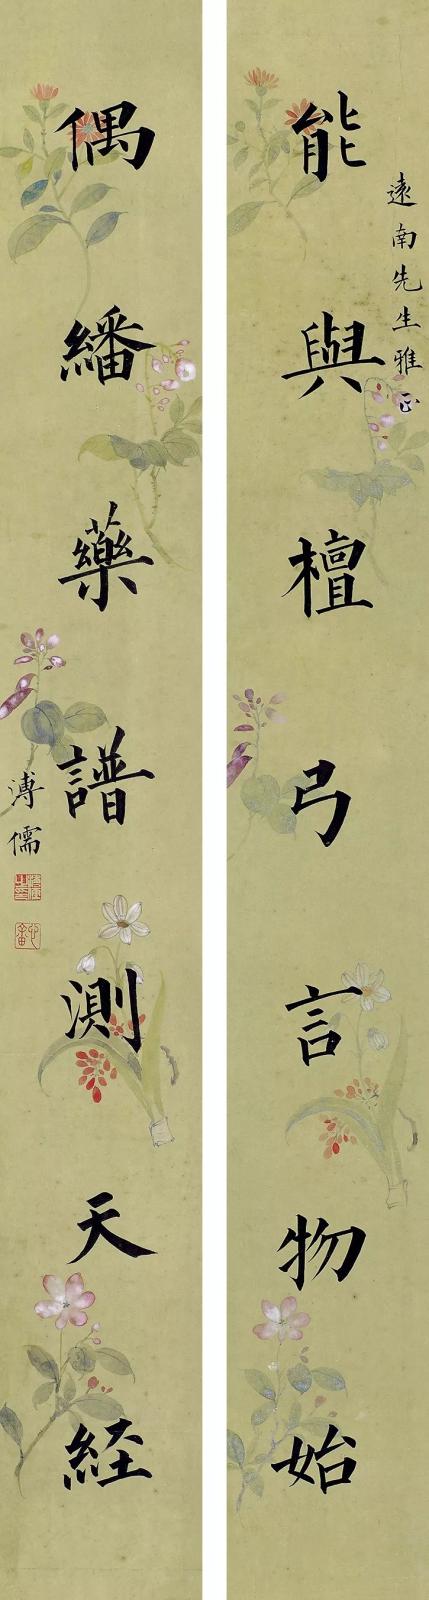 遠南先生雅正
能與檀弓言物始
偶繙藥譜測天經
溥儒